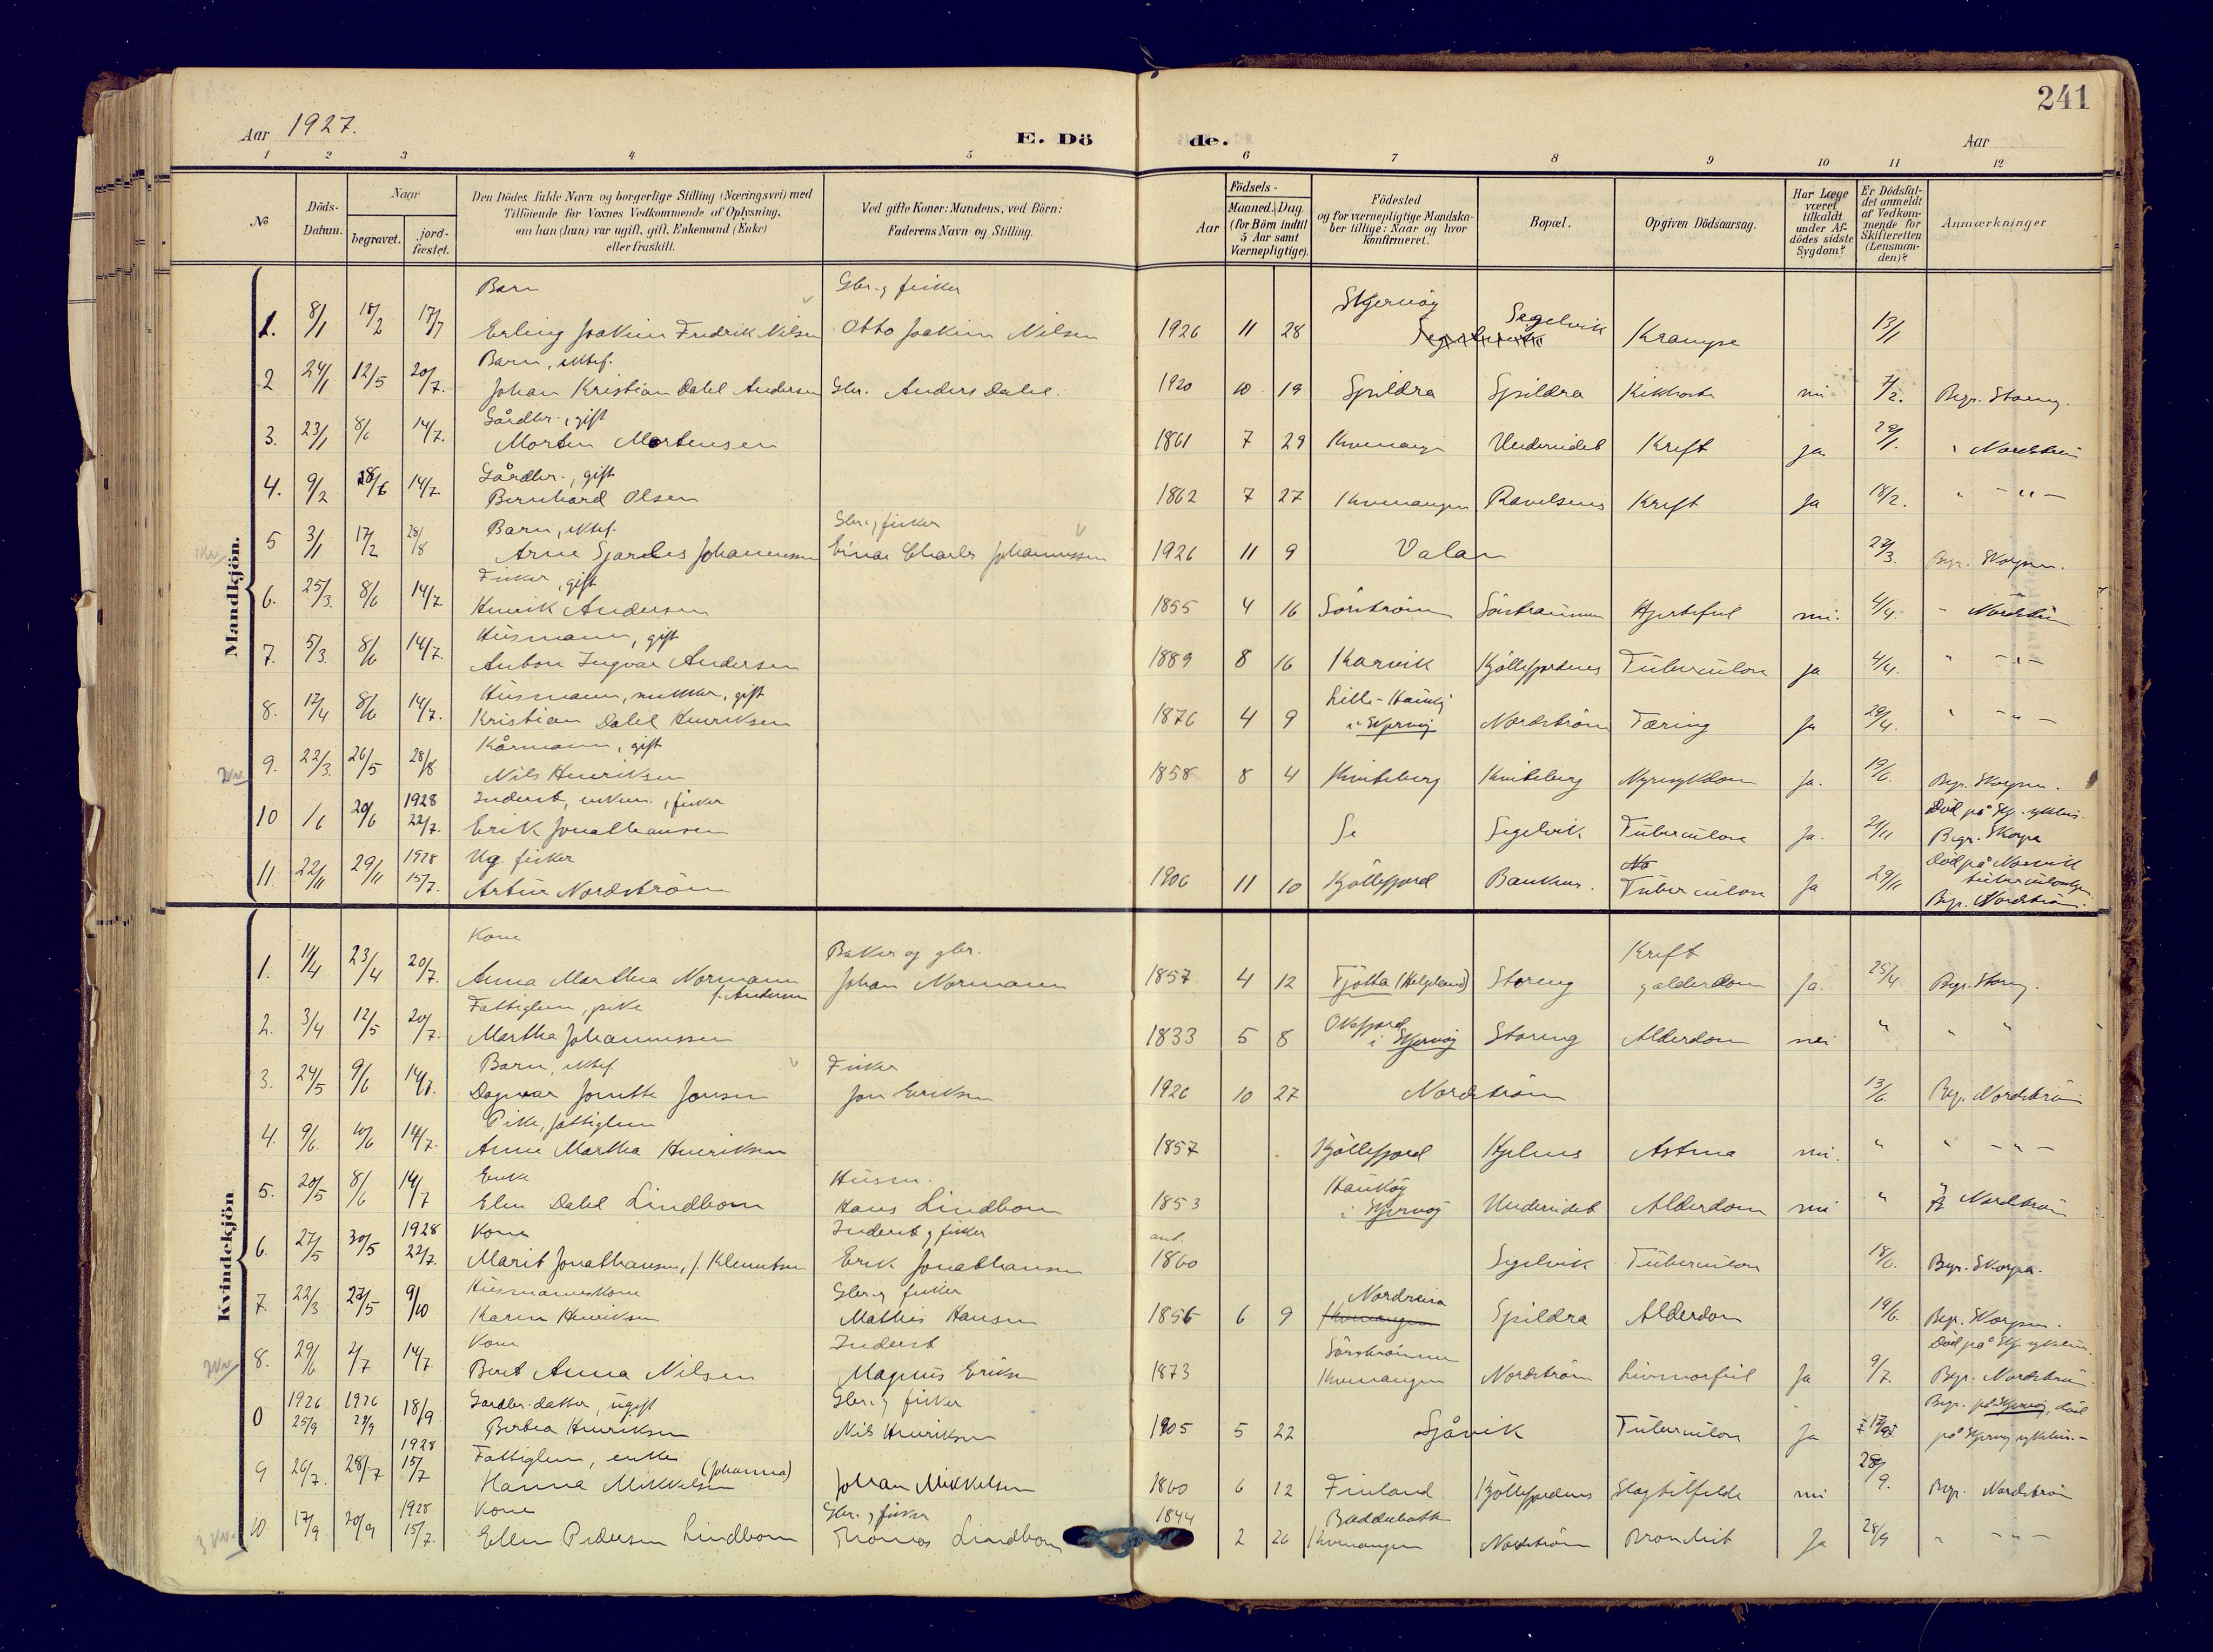 241
Aar 1927.
E. Dö de.
Aar
1 2 3 4 5 6 7 8 9 10 11 12
No
Döds-Datum.
Naar
begravet.
jord-fæstet.
Den Dödes fulde Navn og borgerlige Stilling (Næringsvei) med
Tilföiende for Voxnes Vedkommende af Oplysning,
om han (hun) var ugift, gift, Enkemand (Enke)
eller fraskilt.
Ved gifte Koner: Mandens, ved Börn:
Faderens Navn og Stilling.
Födsels-
Aar
Maaned. Dag.
(for Börn indtil
5 Aar samt
Værnepligtige).
Födested
og for værnepligtige Mandska-
ber tillige: Naar og hvor
konfirmeret.
Bopæl.
Opgiven Dödsaarsag.
Har Læge
været
tilkaldt
under Af-
dödes sidste
Sygdom?
Er Dödsfal-
det anmeldt
af Vedkom-
mende for
Skifteretten
(Lensman-
den)?
Anmærkninger
Mandkjön.
Barn Gbr. og fisker Skjervöy Segelvik
1. 8/1 18/2 17/7 Erling Joakim Fredrik Nilsen Otto Joakim Nilsen 1926 11 28 Krampe 13/1
Barn, ektef.
2 24/1 12/5 20/7. Johan Kristian Dalel Andersen Gbr. Anders Dalel. 1920 10 19 Spildra Spildra Kikhoste nei 7/2. Begr. Storeng.
Gårdbr., gift
3. 23/1 8/6 14/7. Morten Mortensen 1861 7 29 Kvænangen Undereidet Kreft ja. 29/1. " Nordström
Gårdbr., gift
4. 9/2 18/6 14/7. Bernhard Olsen 1862 7 27 Kvænangen Kreft Ja 18/2. " - " -
Barn, ektef. Gbr. og fisker
5 3/1 17/2 28/8 Arne Johannessen Einar Charles Johannessen 1926 11 9 Valan 27/3. Begr. Skorpen.
Fisker, gift
6. 25/3. 8/6 14/7. Henrik Andersen 1855 4 16 Sörström Sörstraumen Hjertefeil nei. 4/4. " Nordström
Husmann, gift
7. 5/3. 8/6 14/7. Anton Ingvar Andersen 1889 8 16 Karvik Kjöllefjordnes Tuberculose Ja 4/4. " - " -
Husmann, snekker, gift Lille-Hauköy
8. 17/4 8/6 14/7. Kristian Dalel Henriksen 1876 4 9 i Skjervöy Nordström Tæring Ja 29/4. " - " -
Kårmann, gift
9. 22/3. 26/5 28/8 Nils Henriksen 1858 8 4 Kviteberg Kviteberg Nyresykdom Ja. 19/6. Begr. Skorpen.
1928 Inderst, enkem., fisker Död på Skj. sykehus.
10 1/6 20/6 22/7. Erik Jonathansen Se Segelvik Tuberculose Ja. 21/11 Begr. Skorpa
1928 Ug. fisker Död på Narvik
11. 22/11 29/11 15/7. Artur Nordström 1906 11 10 Kjöllefjord Tuberculose Ja 29/11 Begr. Nordström.
Kvindekjön
Kone Baker og gbr. Kreft
1. 11/4 23/4 20/7. Anna Marthea Normann f. Andersen Johan Normann 1857 4 12 Tjötta (Helgeland) Storeng g alderdom Ja. 25/4 Begr. Storeng.
Fattiglem, pike Oksfjord
2. 3/4 12/5 20/7. Martha Johannessen 1833 5 8 i Skjervöy Storeng Alderdom nei " " "
Barn, ektef. Fisker
3. 24/5 9/6 14/7. Dagmar Jonette Jonsen Jon Eriksen 1926 10 27 Nordström 13/6. Begr. Nordström
Pike, fattiglem
4. 9/6. 10/6 14/7. Anne Martha Henriksen 1857 Kjöllefjord Astma nei. " " - " -
Enke Husm. Hauköy
5. 20/5 8/6 14/7 Elen Dalel Lindbom Hans Lindbom 1853 i Skjervöy Undereidet Alderdom nei " Nordström
1928 Kone Inderst og fisker ant.
6. 27/5 30/5 22/7. Marit Jonathansen, f. Klemetsen Erik Jonathansen 1860 Segelvik Tuberculose 18/6. Begr. Skorpa.
Husmannskone Gbr. og fisker Nordreisa
7. 22/3 27/5 9/10 Karen Henriksen Mathis Hansen 1856 6 9 Kvænangen Spildra Alderdom 19/6. Begr. Skorpen.
Kone Inderst Sörströmmen Död på Skj. sykehus.
8. 29/6 2/7 14/7. Berit Anna Nilsen Magnus Eriksen 1873 Kvænangen Nordström Livmorfeil Ja 9/7. Begr. Nordström.
1926 1926 Gardbr. datter, ugift Gbr. og fisker Begr. på Skjervöy, död
0 25/9 29/9 18/9 Berbea Henriksen Nils Henriksen 1905 5 22 Sjåvik Tuberculose Ja på Skjervöy sykehus.-
1928 Fattiglem, enke (Johanna)
9 26/7. 28/7 15/7 Hanna Mikkelsen Johan Mikkelsen 1860 6 12 Finland Kjöllefjordnes Slagtilfelde nei 28/9. Begr. Nordström
1928 Kone Gbr. og fisker 1844 Badderbotten
10 17/9. 20/9 15/7. Ellen Pedersen Lindbom Thomas Lindbom 2 26 Kvænangen Nordström Bronchit Ja 28/9 " - " -